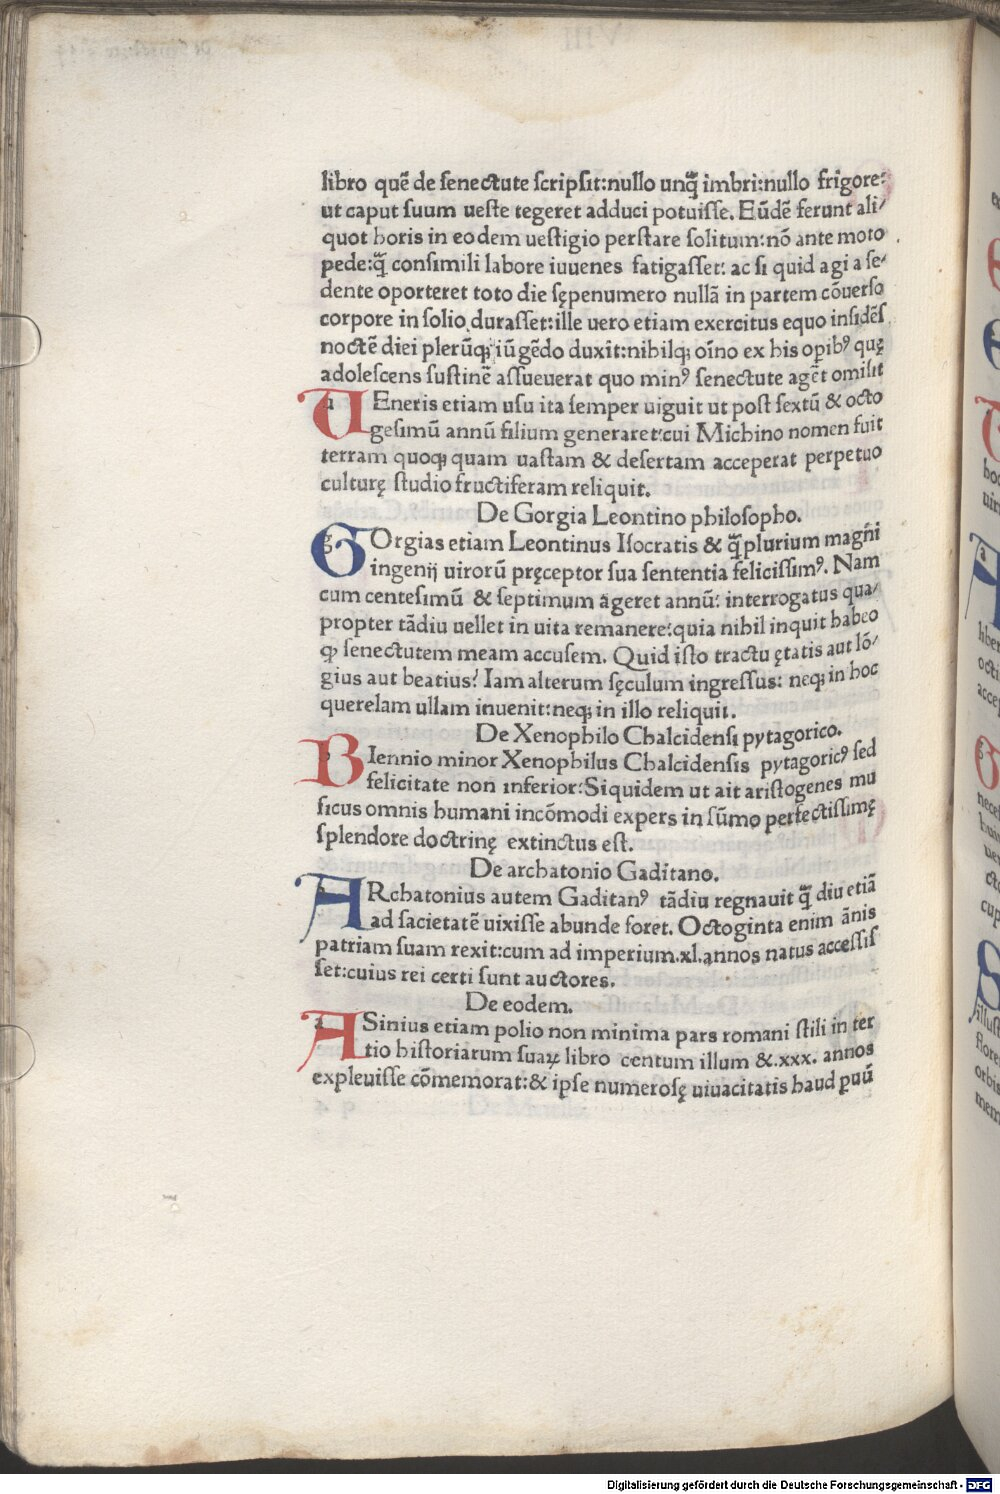 libro quē de ſenectute ſcripſit:nullo unq̄ imbri:nullo frigore:
ut caput ſuum ueſte tegeret adduci potuiſſe. Eūdē ferunt ali/
quot horis in eodem ueſtigio perſtare ſolitum:nō ante moto
pede:q̄ conſimili labore iuuenes fatigaſſet: ac ſi quid agi a ſe/
dente oporteret toto die ſępenumero nullā in partem cōuerſo
corpore in ſolio duraſſet:ille uero etiam exercitus equo inſidēſ
noctē diei plerūqꝫ iūgēdo duxit:nihilqꝫ oīno ex his opibꝰ quę
adoleſcens ſuſtinē aſſueuerat quo minꝰ ſenectute agēt omiſit
UEneris etiam uſu ita ſemper uiguit ut poſt ſextū & octo
geſimū annū filium generaret:cui Michino nomen fuit
terram quoqꝫ quam uaſtam & deſertam acceperat perpetuo
culturę ſtudio fructiferam reliquit.
De Gorgia Leontino philoſopho.
GOrgias etiam Leontinus Iſocratis & q̄plurium magni
ingenij uirorū pręceptor ſua ſententia feliciſſimꝰ. Nam
cum centeſimū & ſeptimum ageret annū: interrogatus qua/
propter tādiu uellet in uita remanere:quia nihil inquit habeo
ꝙ ſenectutem meam accuſem. Quid iſto tractu ętatis aut lō/
gius aut beatius? Iam alterum ſęculum ingreſſus: neqꝫ in hoc
querelam ullam inuenit:neqꝫ in illo reliquit.
De Xenophilo Chalcidenſi pytagorico.
BIennio minor Xenophilus Chalcidenſis pytagoricꝰ ſed
felicitate non inferior:Siquidem ut ait ariſtogenes mu
ſicus omnis humani incōmodi expers in ſūmo perfectiſſimę
ſplendore doctrinę extinctus eſt.
De archatonio Gaditano.
ARchatonius autem Gaditanꝰ tādiu regnauit q̄ diu etiā
ad ſacietatē uixiſſe abunde foret. Octoginta enim ānis
patriam ſuam rexit:cum ad imperium.xl.annos natus acceſſiſ
ſet:cuius rei certi ſunt auctores.
De eodem.
ASinius etiam polio non minima pars romani ſtili in ter
tio hiſtoriarum ſuaꝝ libro centum illum &.xxx. annos
expleuiſſe cōmemorat:& ipſe numeroſę uiuacitatis haud puū
Digitalisierung gefördert durch die Deutsche Forschungsgemeinschaft - DFG